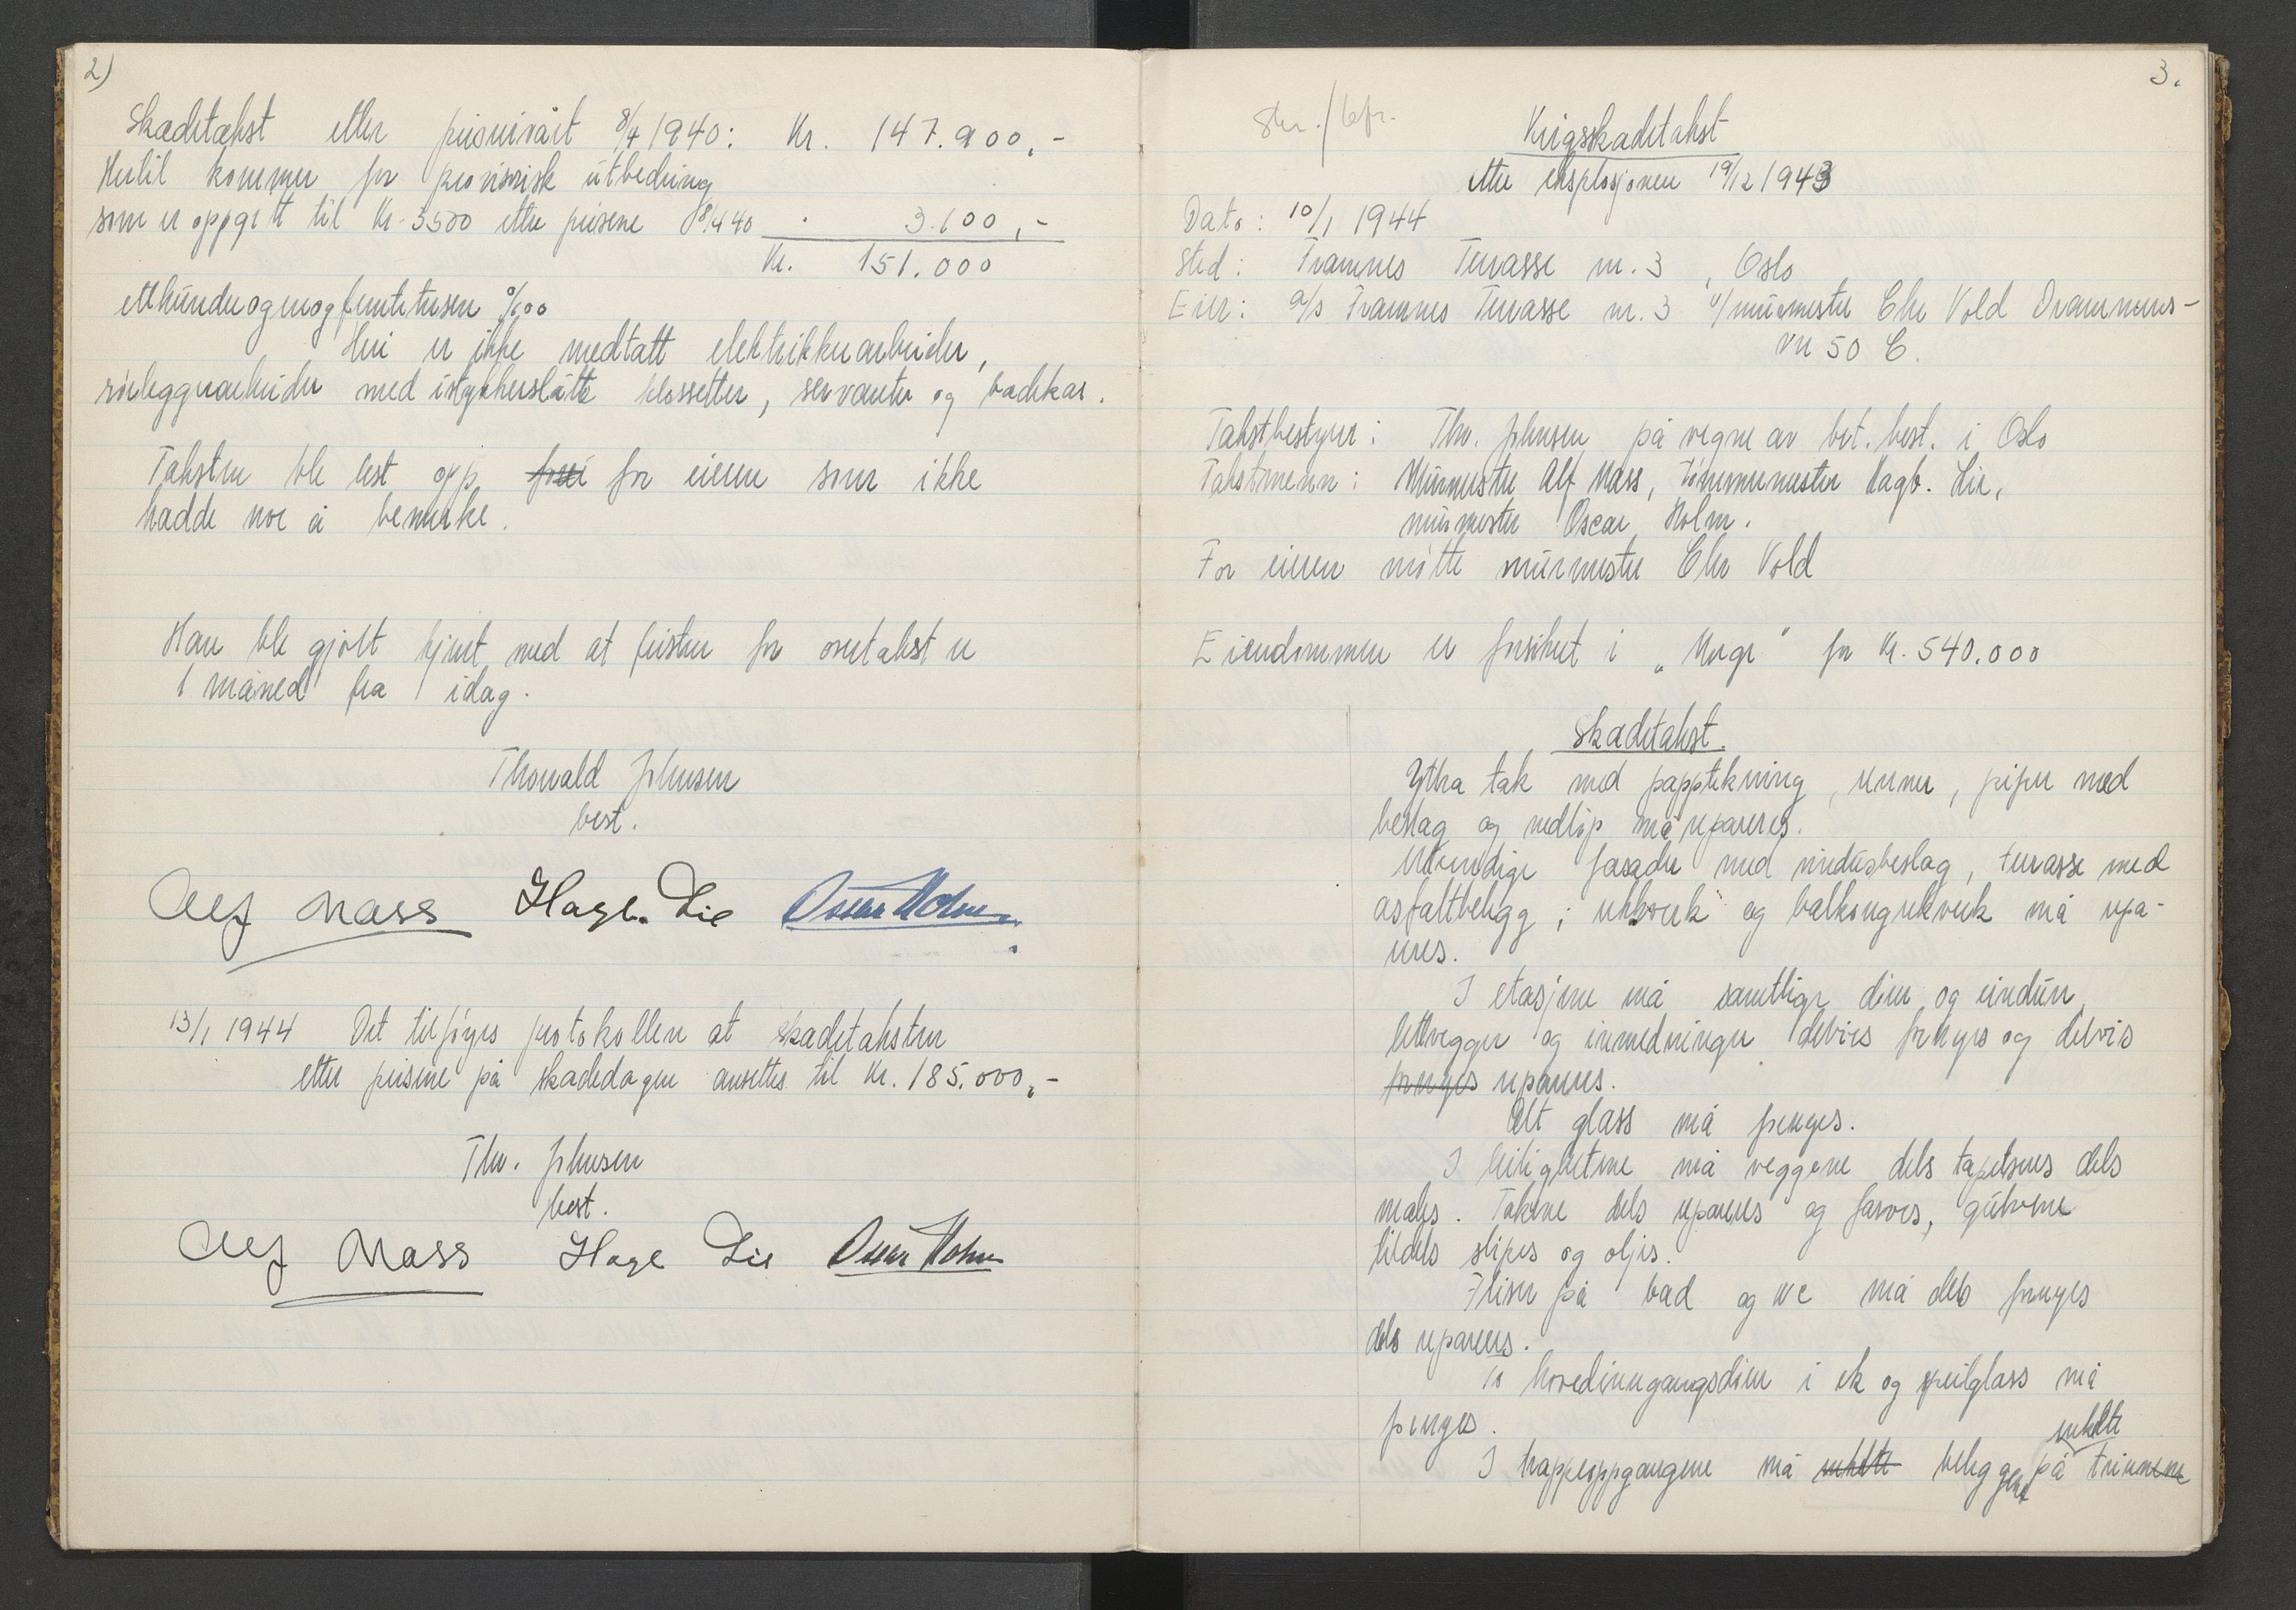 2)
Skadetakst etter prisnivået 8/4 1940: Kr. 147.900,-
Hertil kommer for provisorisk utbedring
som er oppgitt til Kr. 3500 etter prisene 8/4 40 " 3.100,-
Kr. 151.000
etthundreogenogfemtitusen 0/00
Heri er ikke medtatt elektrikerarbeider,
rørleggerarbeider med istykkerslåtte klossetter, servanter og badekar.
Taksten ble lest opp for eieren som ikke
hadde noe å bemerke.
Han ble gjort kjent med at fristen for overtakst er
1 måned fra idag.
Thorvald Johnsen
best.
Alf Mass Hagb. Lie Oscar Holm
13/1 1944 Det tilføyes protokollen at skadetaksten
etter prisene på skadedagen ansettes til Kr. 185.000,-
Thv. Johnsen
best.
Alf Mass Hagb Lie Oscar Holm
3.
Skr./bfr.
Krigsskadetakst
etter eksplosjonen 19/12 1943
Dato: 10/1 1944
Sted: Framnes Terrasse nr. 3, Oslo
Eier: A/S Framnes Terrasse nr. 3 v/murmester Chr Vold Drammens-
vn 50 C.
Takstbestyrer: Thv. Johnsen på vegne av bet. best. i Oslo
Takstmenn: Murmester Alf Mass, tømmermester Hagb. Lie,
murmester Oscar Holm.
For eieren møtte murmester Chr Vold
Eiendommen er forsikret i "Norge" for Kr. 540.000
Skadetakst.
Yttra tak med papptekning, renner, piper med
beslag og nedløp må repareres.
Utvendige fasader med vindusbeslag, terrasse med
asfaltbelegg; rekkverk og balkongrekkverk må repa-
reres.
I etasjene må samtlige dører og vinduer,
lettvegger og innredninger delvis fornyes og delvis
fornyes repareres.
Alt glass må fornyes.
I leilighetene må veggene dels tapetseres dels
males. Takene dels repareres og farves, gulvene
tildels slipes og oljes.
Fliser på bad og wc må dels fornyes
dels repareres.
10 hovedinngangsdører i ek og speilglass må
fornyes.
enkelte
I trappeoppgangene må enkelte beleggene på trinnene